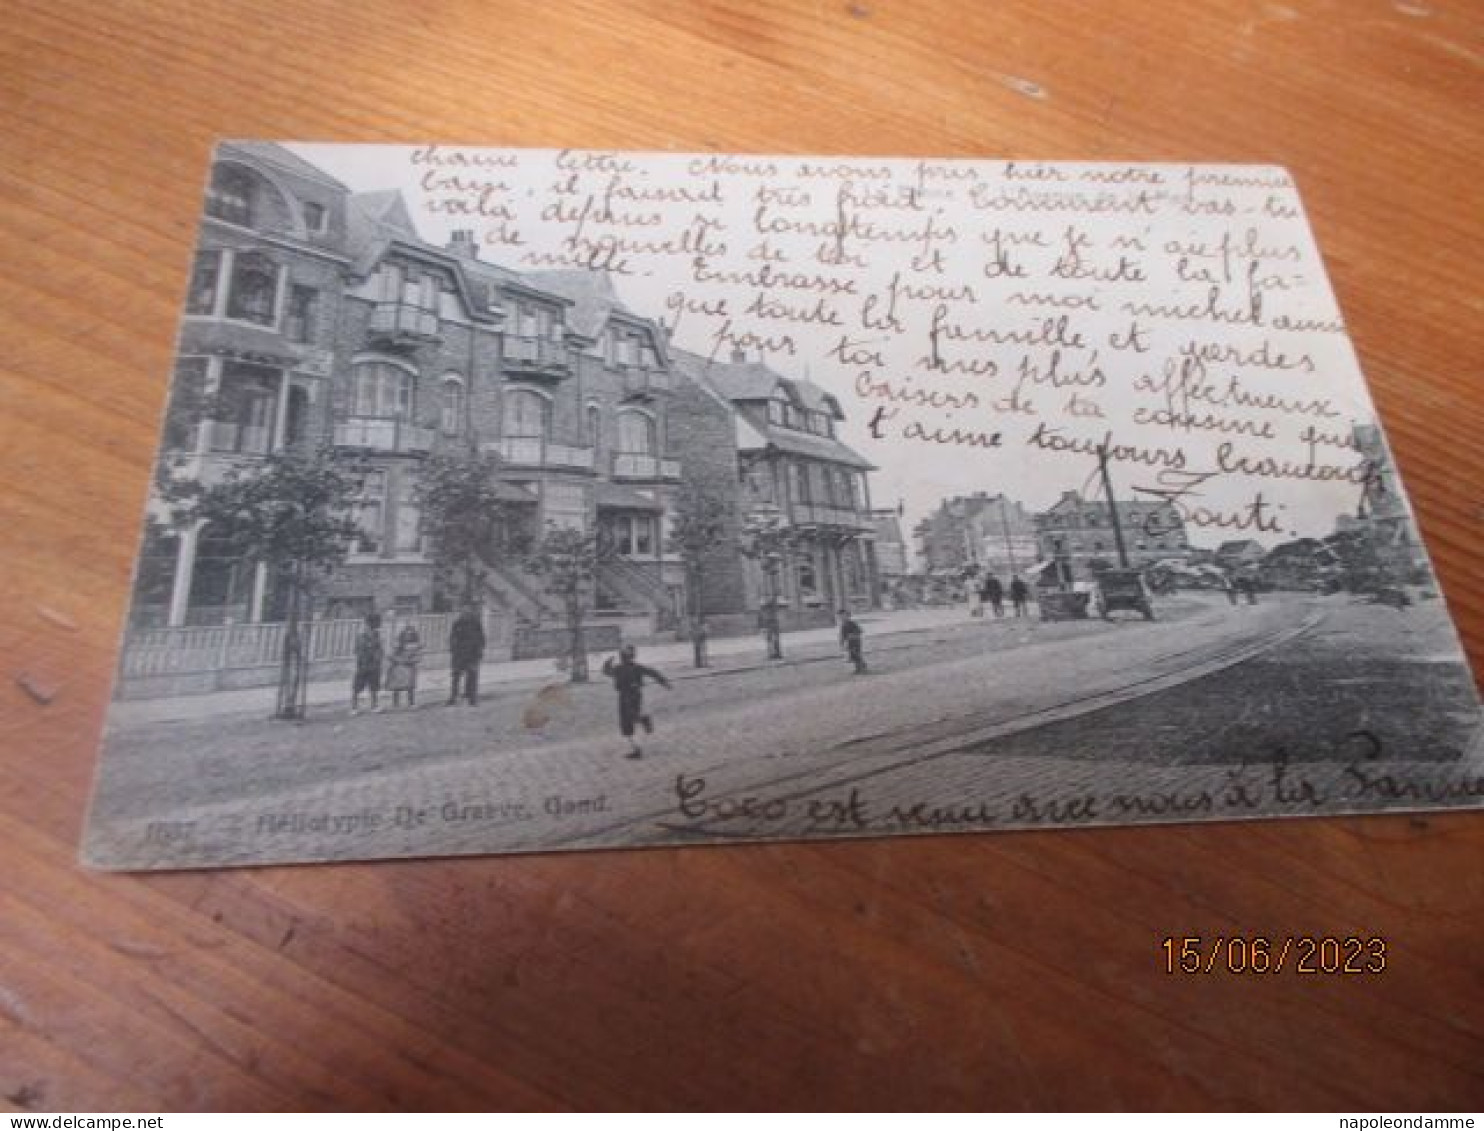 chaine lettre. Nous avons pris hier notre premier
bain, il faisait très froid. Comment vas-tu
voilà depuis si longtemps que je n'ai plus
de nouvelles de toi et de toute la fa-
mille. Embrasse pour moi michel ainsi
que toute la famille et gardes
pour toi mes plus affectueux
baisers de ta cousine qui
t'aime toujours beaucoup
Touti.
Coco est venu avec nous à la Panne
1637 - Héliotypie De Graeve, Gand.
15/06/2023
delcampe.net
napoleondamme